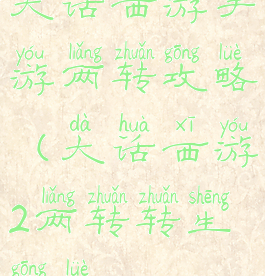 大话西游手
yóu liǎng zhuǎn gōng lüè
游两转攻略
dà huà xī yóu
(大话西游
liǎng zhuǎn zhuǎn shēng
2两转转生
gōng lüè